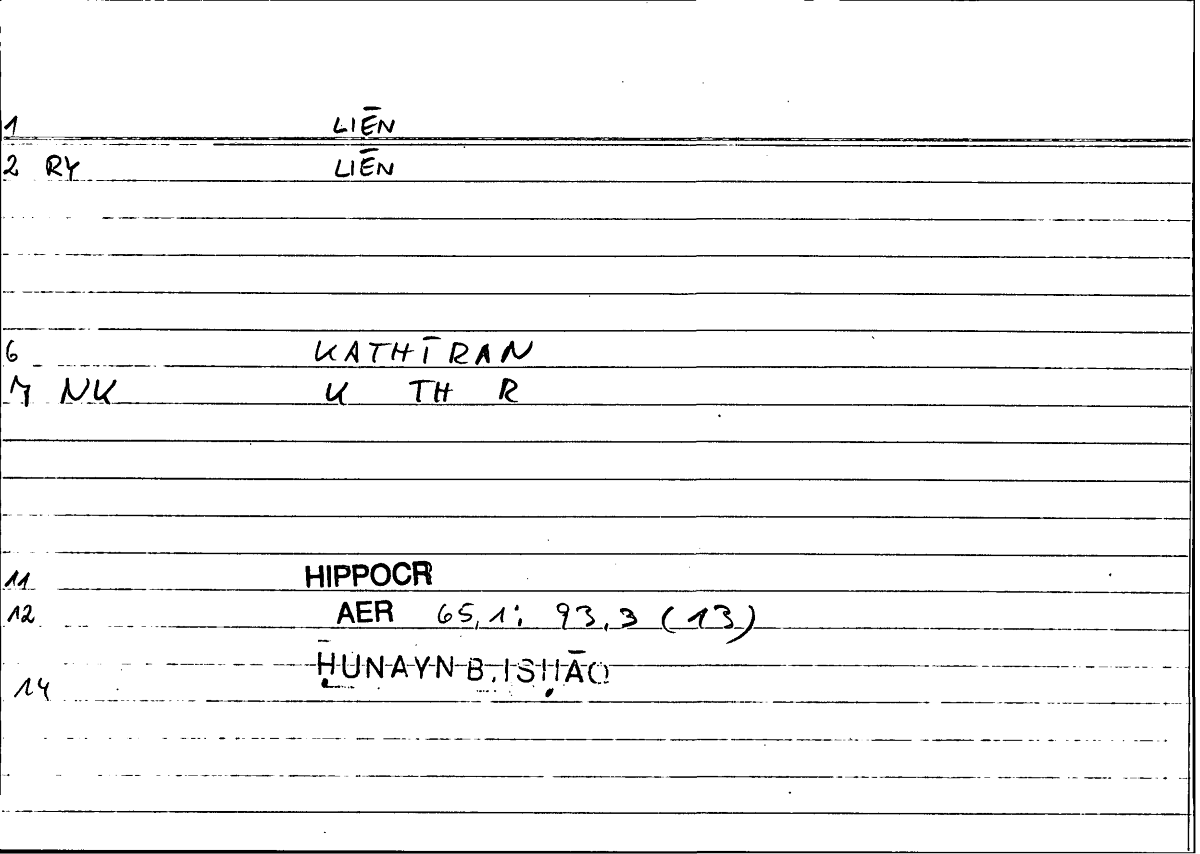 1 LIĒN
2 RY LIĒN
6 KATHĪRAN
7 NK K TH R
11 HIPPOCR
12 AER 65,1: 93,3 (13)
ḤUNAYN B. ISḤĀQ
14